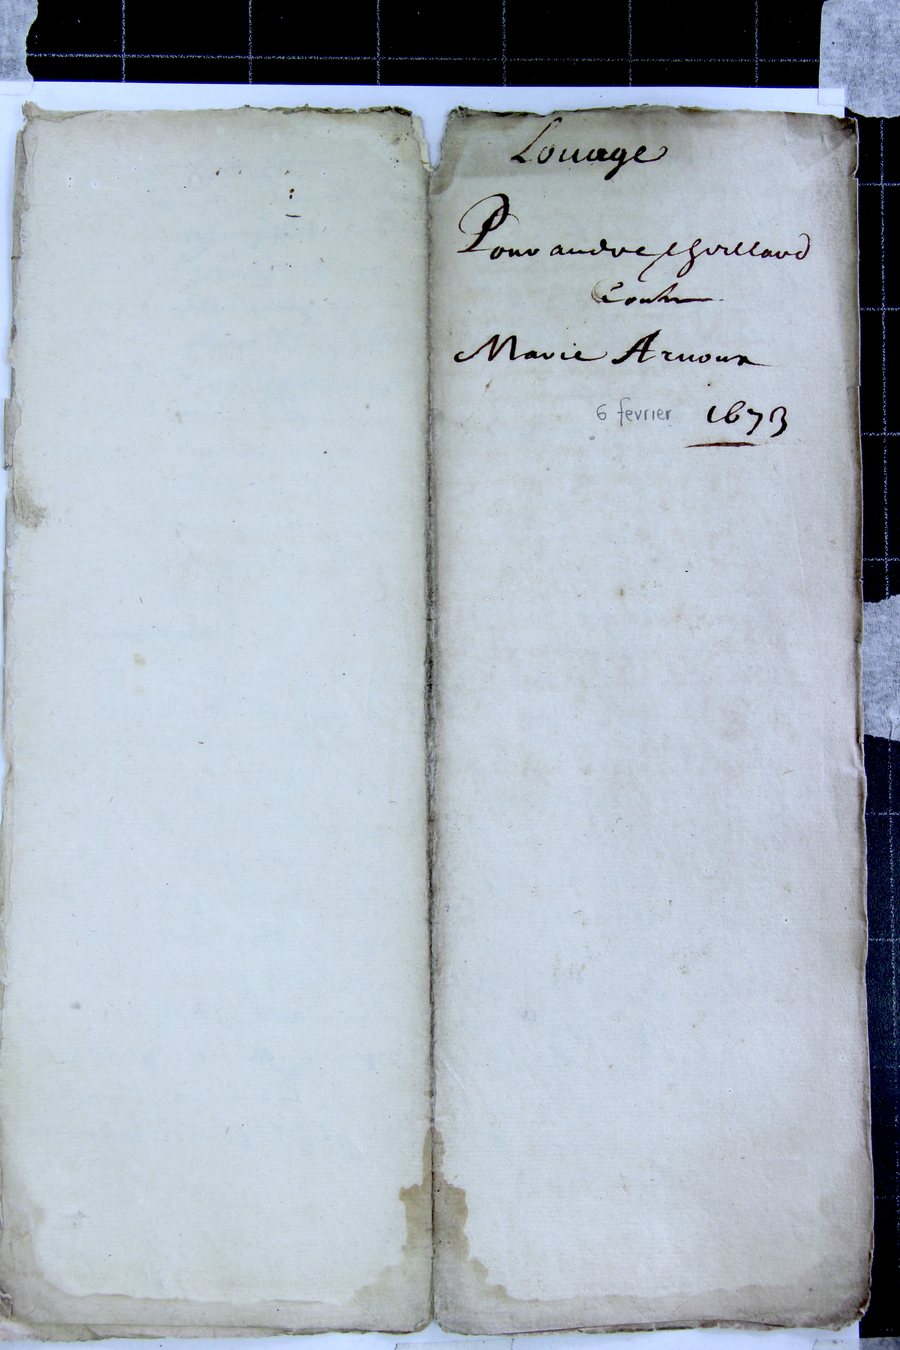 Louage
Pour andre
Contre
Marie Arnoux
6 fevrier 1673